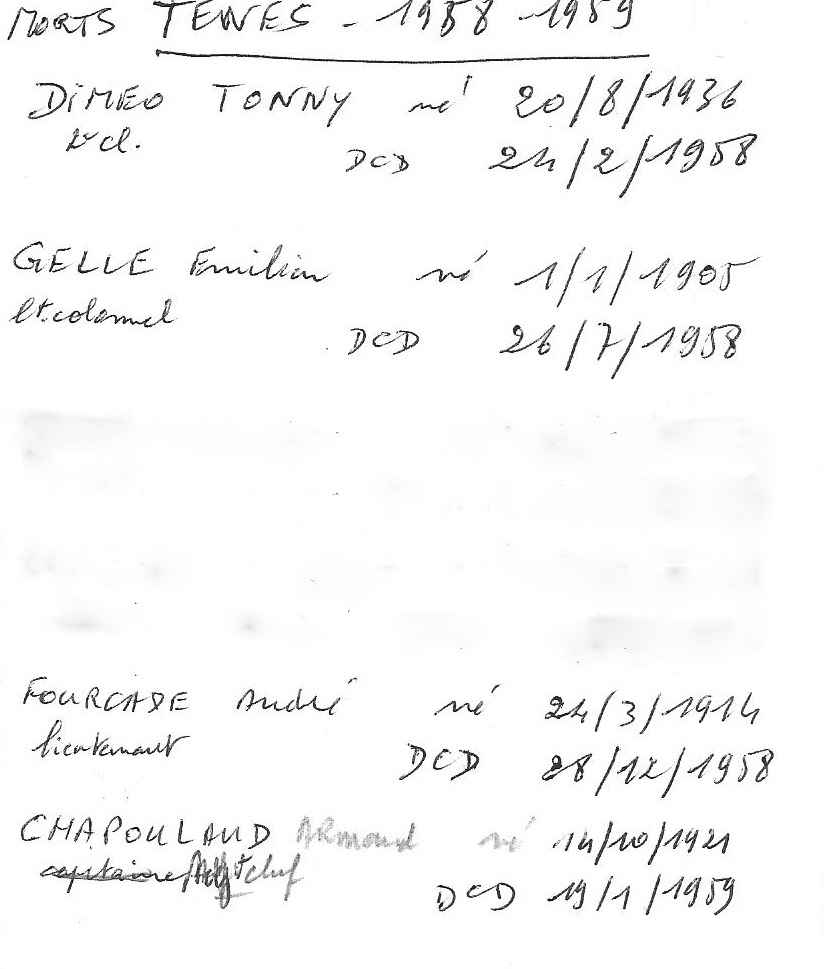 MORTS TENES - 1958 - 1959
DiMEO TONNY né 20/8/1936
2e cl.
DCD 24/2/1958
GELLE Emilien né 1/1/1905
lt.colonnel
DCD 26/7/1958
FOURCADE André né 24/3/1914
lieutenant
DCD 28/12/1958
CHAPOULAUD ARmand né 14/10/1921
capitaine Adjt chef
DCD 19/1/1959